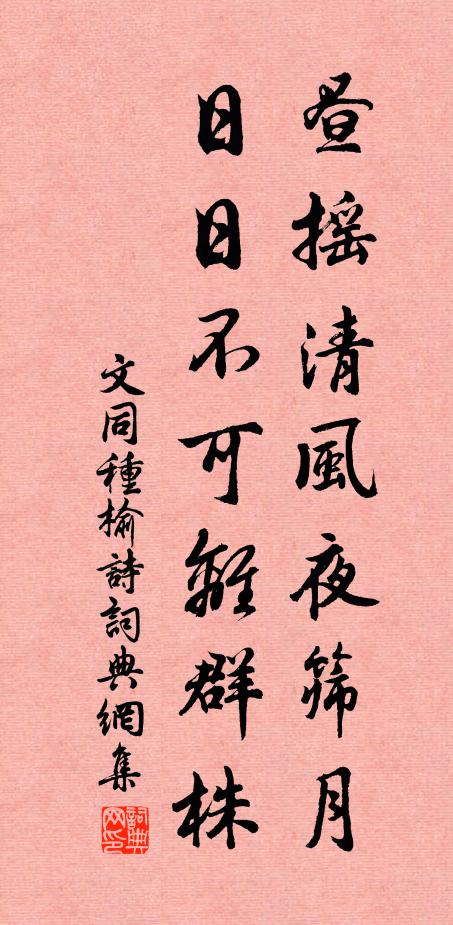 昼摇清風夜篩月
日日不可離群株
文同種榆詩詞典網集
詞典网印